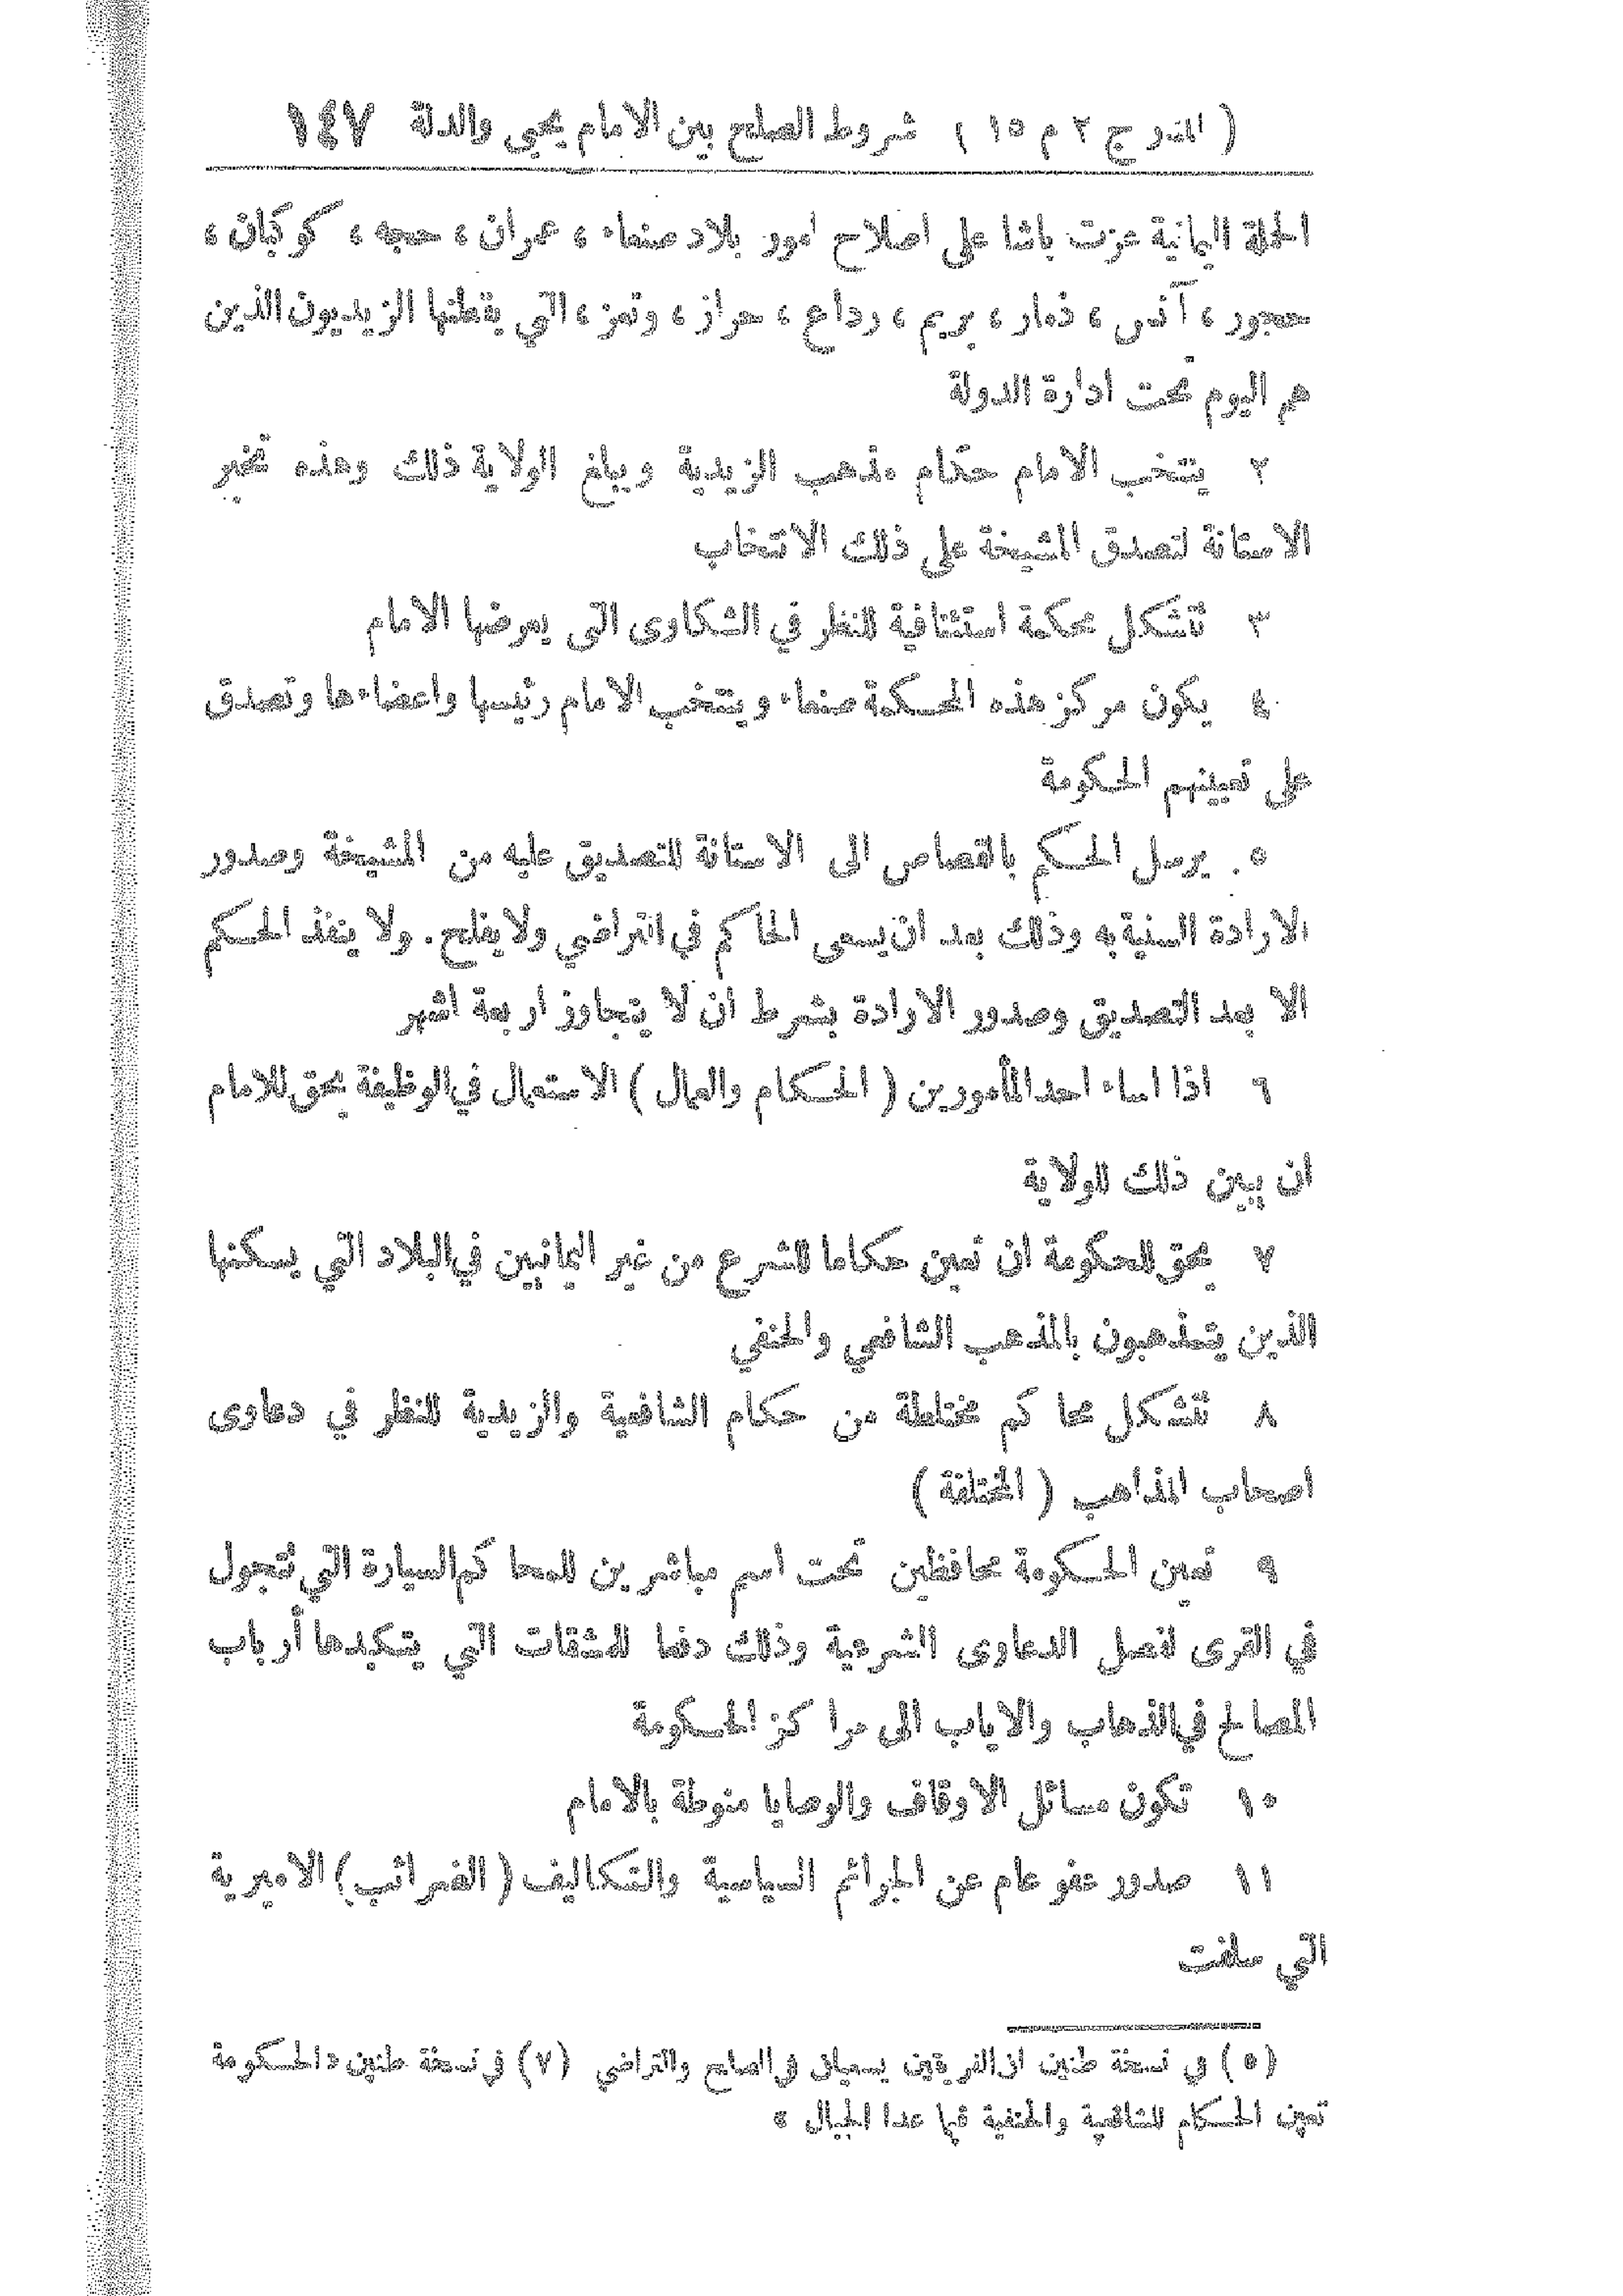 ( المنار ج ٢ م ١٥ ) شروط الصلح بين الامام يحيى والدلة ١٤٧
الحملة اليمانية عزت باشا على اصلاح امور بلاد صنعاء ، عمران ، حجه ، كوكبان ،
حجور ، آنس ، ذمار ، يريم ، رداع ، حراز ، وتعز ، التي يقطنها الزيديون الذين
هم اليوم تحت ادارة الدولة
٢ ينتخب الامام حكام مذهب الزيدية ويبلغ الولاية ذلك وهذه تخبر
الاستانة لتصدق المشيخة على ذلك الانتخاب
٣ تتشكل محكمة استئنافية للنظر في الشكاوى التى يعرضها الامام
٤ يكون مركز هذه المحكمة صنعاء وينتخب الامام رئيسها واعضاءها وتصدق
على تعيينهم الحكومة
٥ يرسل الحكم بالقصاص الى الاستانة للتصديق عليه من المشيخة وصدور
الارادة السنية به وذلك بعد ان يسعى الحاكم في التراضي ولا يفلح. ولا ينفذ الحكم
الا بعد التصديق وصدور الارادة بشرط ان لا يتجاوز اربعة اشهر
٦ اذا اساء احد المأمورين ( الحكام والعمال ) الاستعمال في الوظيفة يحق للامام
ان يبين ذلك للولاية
٧ يحق للحكومة ان تعين حكاما للشرع من غير اليمانيين في البلاد التي يسكنها
الذين يتمذهبون بالمذهب الشافعي والحنفي
٨ تتشكل محاكم مختلطة من حكام الشافعية والزيدية للنظر في دعاوى
اصحاب المذاهب ( المختلفة )
٩ تعين الحكومة محافظين تحت اسم مباشرين للمحاكم السيارة التي تتجول
في القرى لفصل الدعاوى الشرعية وذلك دفعا للمشقات التي يتكبدها أرباب
المصالح في الذهاب والاياب الى مراكز الحكومة
١٠ تكون مسائل الاوقاف والوصايا منوطة بالامام
١١ صدور عفو عام عن الجرائم السياسية والتكاليف ( الضرائب ) الاميرية
التي سلفت
(٥) في نسخة طنين ان الفريقين يسعيان في الصلح والتراضي (٧) في نسخة طنين «الحكومة
تعين الحكام للشافعية والحنفية فيما عدا الجبال »